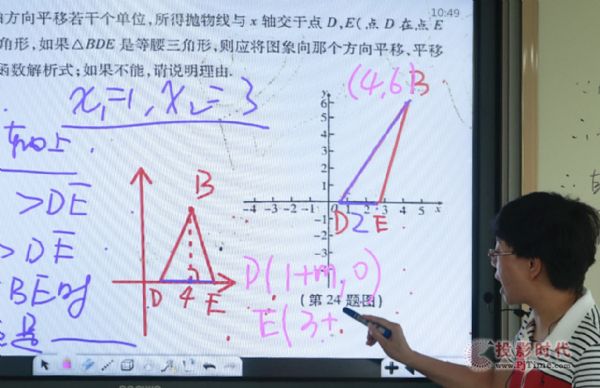 10:49
方向平移若干个单位,所得抛物线与 x 轴交于点 D,E(点 D 在点 E
角形,如果△BDE 是等腰三角形,则应将图象向那个方向平移,平移
函数解析式;如果不能,请说明理由.
x₁=1, x₂=3
(4,6)B
y
6
5
4
3
2
1
-4 -3 -2 -1 0 1 2 3 4 5 x
-1
-2
-3
D 2 E
>DE
>DE
BE时
B
D 4 E
D(1+m,0)
(第 24 题图)
E(3+
投影时代
www.PjTime.com